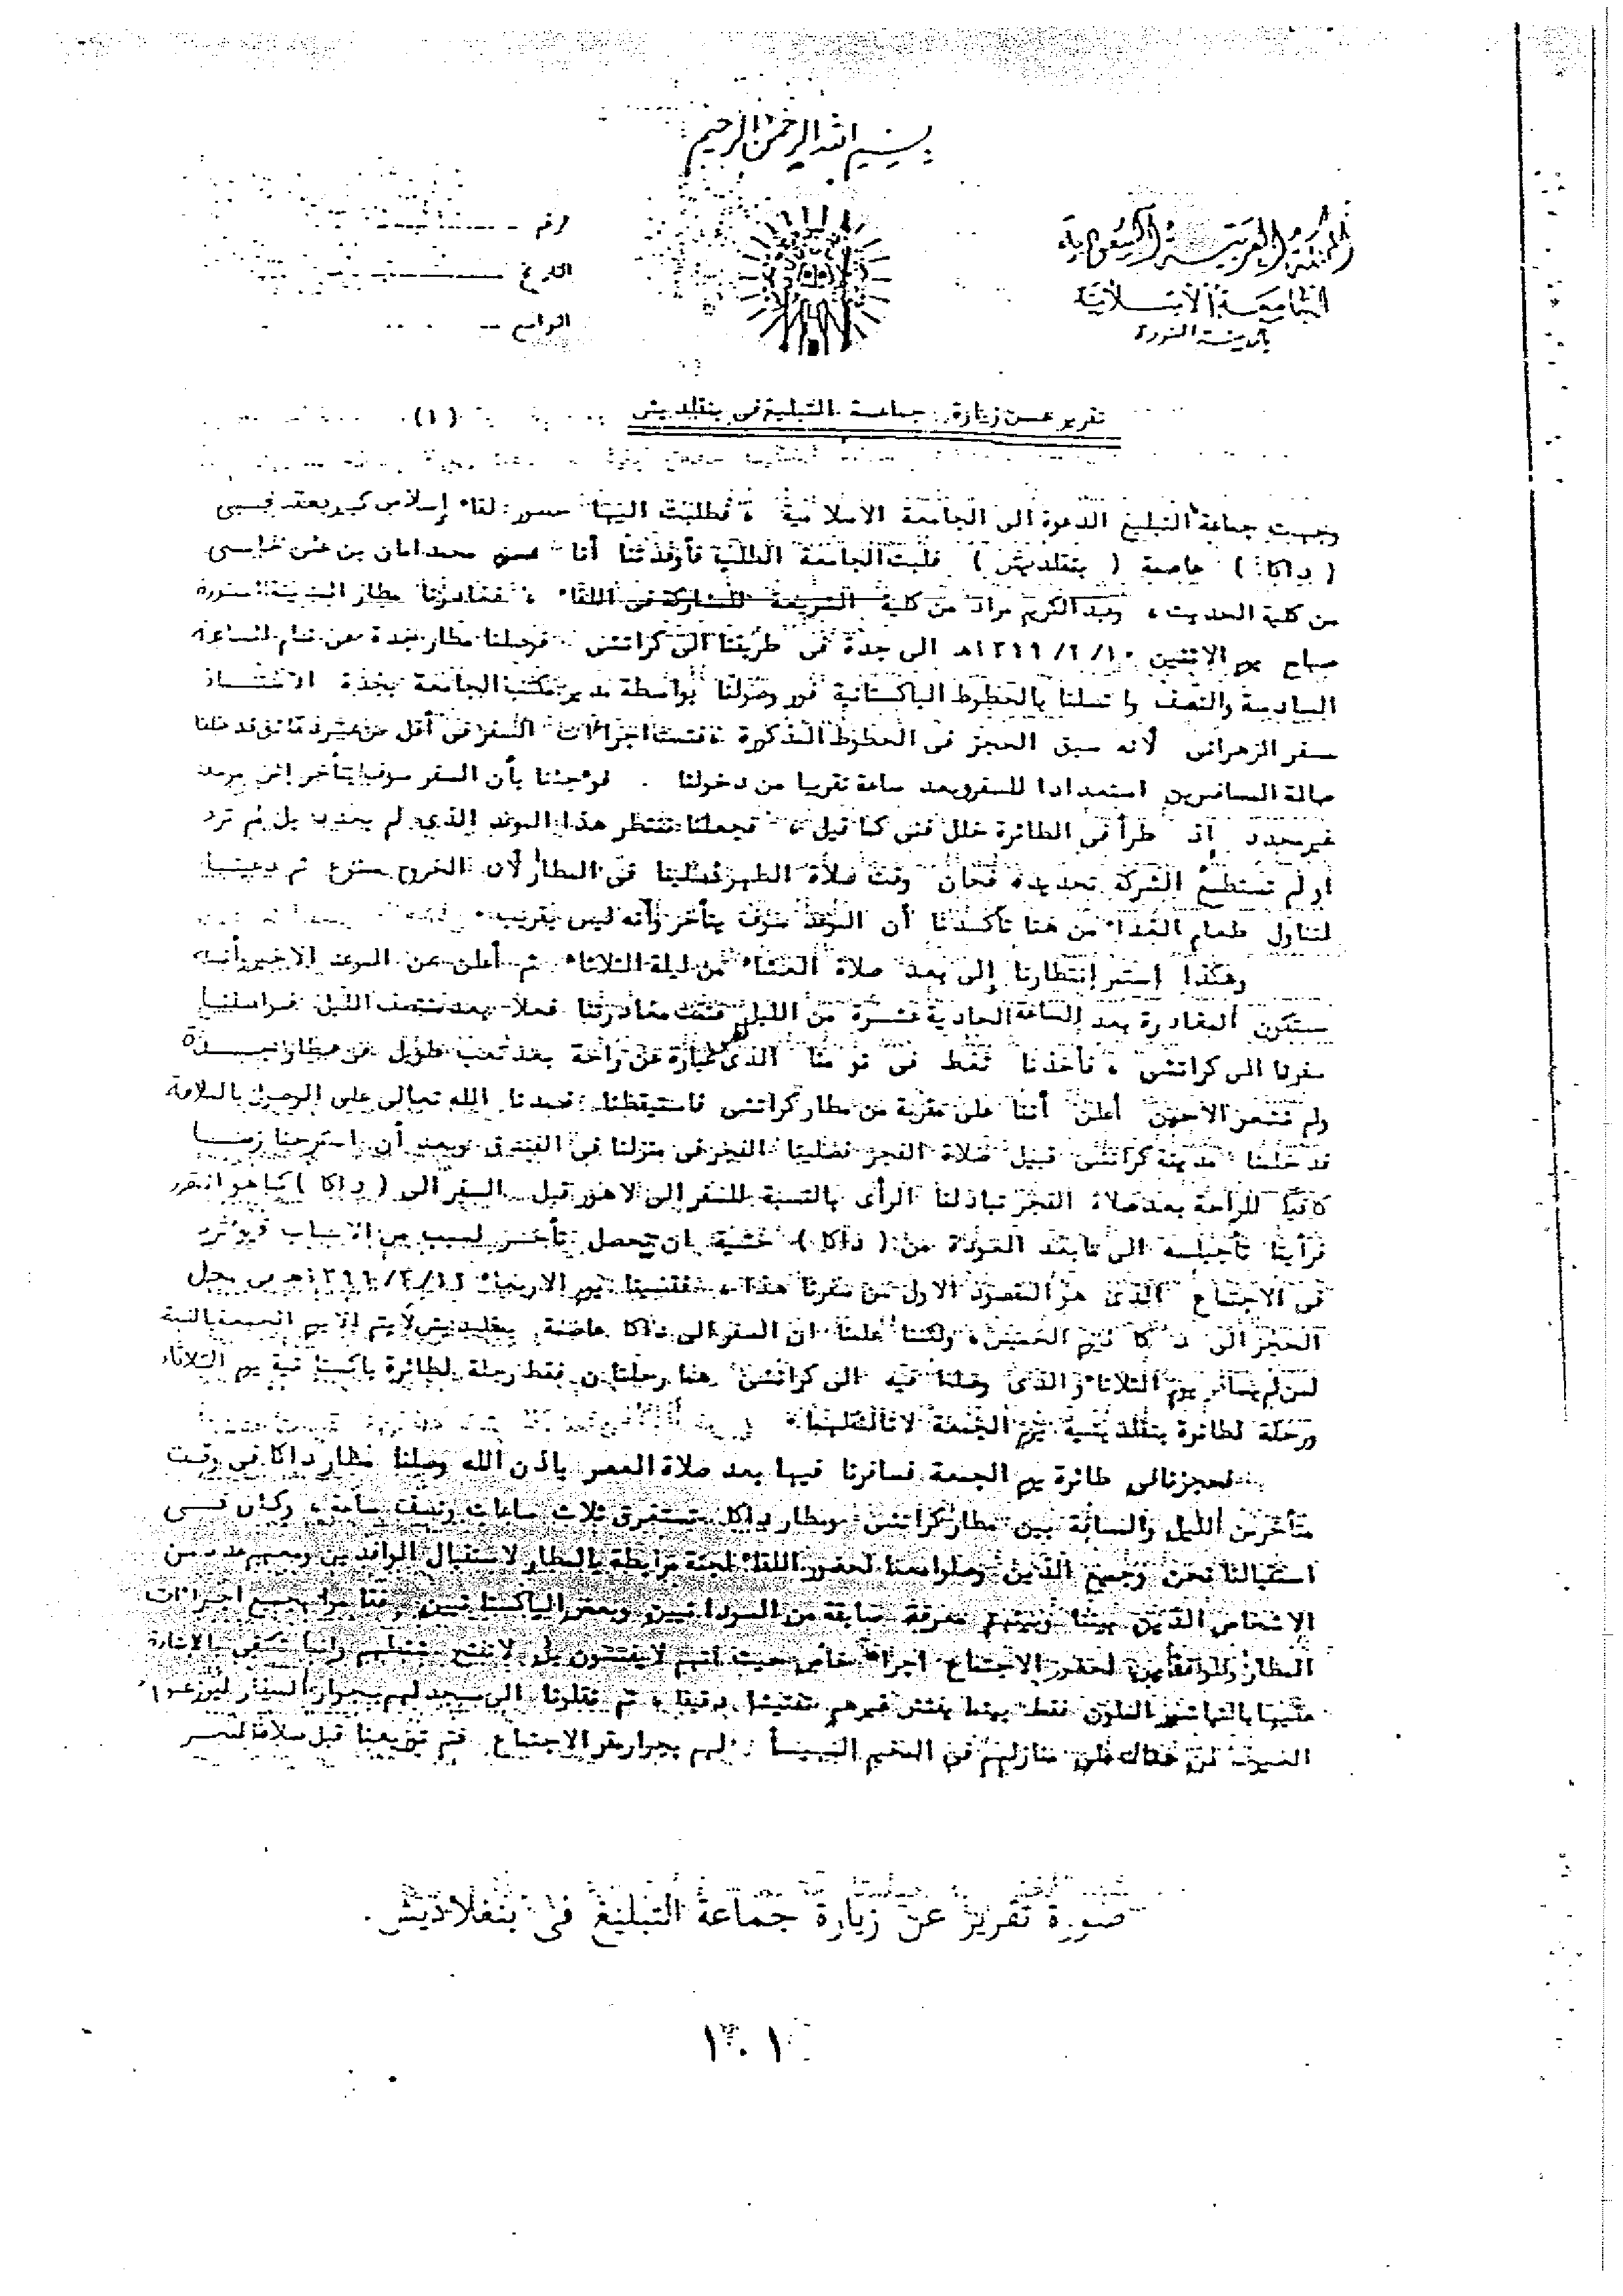 بسم الله الرحمن الرحيم
المملكة العربية السعودية
الجامعة الاسلامية
بالمدينة المنورة
الرقم
التاريخ
تقرير عن زيارة جماعة التبليغ في بنقلديش (١)
وجهت جماعة التبليغ الدعوة الى الجامعة الاسلامية ، فطلبت اليها حضور لقاء إسلامي كبير يعقد في
( داكا ) عاصمة ( بنقلديش ) فلبت الجامعة الطلب فأوفدتنا أنا محمد امان بن علي جامي
من كلية الحديث ، وعبد الكريم مراد من كلية الشريعة للمشاركة في اللقاء ، فغادرنا مطار المدينة المنورة
صباح يوم الاثنين الى جدة في طريقنا الى كراتشي فوصلنا مطار جدة تمام الساعة
السادسة والنصف واتصلنا بالخطوط الباكستانية فور وصولنا بواسطة مدير مكتب الجامعة بجدة الاستاذ
سفر الزهراني لأنه سبق الحجز في الخطوط المذكورة ، فتمت اجراءات السفر في أقل من عشر دقائق فدخلنا
صالة المسافرين استعدادا للسفر وبعد ساعة تقريبا من دخولنا . فوجئنا بأن السفر سوف يتأخر إلى موعد
غير محدد إذ طرأ في الطائرة خلل فني كما قيل ، فجعلنا ننتظر هذا الموعد الذي لم يحدد بل لم ترد
او لم تستطع الشركة تحديده فحان وقت صلاة الظهر فصلينا في المطار لأن الخروج ممنوع ثم دعينا
لتناول طعام الغداء من هنا تأكدنا أن الموعد سوف يتأخر وأنه ليس بقريب
وهكذا إستمر إنتظارنا إلى بعد صلاة العشاء من ليلة الثلاثاء ثم أعلن عن الموعد الاخير وأنه
ستكون المغادرة بعد الساعة الحادية عشرة من الليل فتمت مغادرتنا فعلا بعد منتصف الليل فواصلنا
سفرنا الى كراتشي ، فأخذنا نغط في نومنا الذي هو عبارة عن راحة بعد تعب طويل في مطار جدة
ولم نشعر الا حين أعلن أننا على مقربة من مطار كراتشي فاستيقظنا فحمدنا الله تعالى على الوصول بالسلامة
فدخلنا مدينة كراتشي قبيل صلاة الفجر فصلينا الفجر في منزلنا في الفندق وبعد أن استرحنا زمنا
كافيا للراحة بعد صلاة الفجر تبادلنا الرأى بالنسبة للسفر إلى لاهور قبل السفر الى ( داكا ) كما هو المقرر
فرأينا تأجيله الى ما بعد العودة من ( داكا ) خشية ان يحصل تأخر لسبب من الاسباب فيؤثر
في الاجتماع الذي هو المقصود الاول من سفرنا هذا ، فقضينا يوم الاربعاء
الحجز الى داكا ليوم الخميس ، ولكننا علمنا ان السفر الى داكا عاصمة بنقلديش لا يتم الا يوم الجمعة بالنسبة
لمن لم يسافر يوم الثلاثاء والذى وصلنا فيه الى كراتشي هنا رحلتان فقط رحلة لطائرة باكستانية يوم الثلاثاء
ورحلة لطائرة بنقلديشية يوم الجمعة لا ثالث لهما
فحجزنا في طائرة يوم الجمعة فسافرنا فيها بعد صلاة العصر باذن الله وصلنا مطار داكا في وقت
متأخر من الليل والمسافة بين مطار كراتشي ومطار داكا تستغرق ثلاث ساعات ونصف ساعة ، وكان في
استقبالنا نحن وجميع الذين وصلوا معنا لحضور اللقاء لجنة مرابطة بالمطار لاستقبال الوافدين ومعهم عدد من
الاشخاص الذين بيننا وبينهم معرفة سابقة من السودانيين وبعض الباكستانيين وقد جميع اجراءات
المطار وللوافدين لحضور الاجتماع اجراء خاص حيث انهم لا يفتشون بل لا تفتح شنطهم وانما تكتفى بالاشارة
عليها بالطباشير الملون فقط بينما يفتش غيرهم تفتيشا دقيقا ، ثم نقلونا الى مسجد لهم بجوار المطار ليوزعوا
الضيوف من هناك على منازلهم في المخيم المهيأ لهم بجوار مقر الاجتماع فتم توزيعنا قبل صلاة الفجر
صورة تقرير عن زيارة جماعة التبليغ في بنغلاديش.